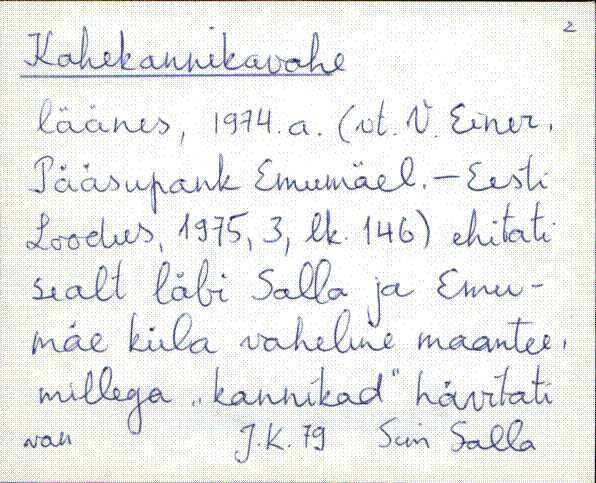 2
Kahekannikavahe
läänes, 1974.a. (vt. V. Einer.
Pääsupank Emumäel. – Eesti
Loodus, 1975, 3, lk. 146) ehitati
sealt läbi Salla ja Emu-
mäe küla vaheline maantee,
millega „kannikad" hävitati
J.K. 79 Sim Salla